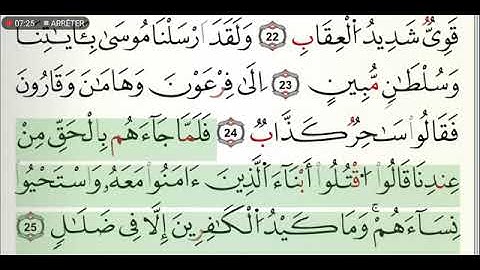 07:25 ■ ARRÊTER
قَوِىٌّ شَدِيدُ الْعِقَابِ 22 وَلَقَدْ أَرْسَلْنَا مُوسَىٰ بِـَٔايَـٰتِنَا
وَسُلْطَـٰنٍ مُّبِينٍ 23 إِلَىٰ فِرْعَوْنَ وَهَـٰمَـٰنَ وَقَـٰرُونَ
فَقَالُوا۟ سَـٰحِرٌ كَذَّابٌ 24 فَلَمَّا جَآءَهُم بِالْحَقِّ مِنْ
عِندِنَا قَالُوا۟ اقْتُلُوٓا۟ أَبْنَآءَ الَّذِينَ ءَامَنُوا۟ مَعَهُۥ وَاسْتَحْيُوا۟
نِسَآءَهُمْ ۚ وَمَا كَيْدُ الْكَـٰفِرِينَ إِلَّا فِى ضَلَـٰلٍ 25